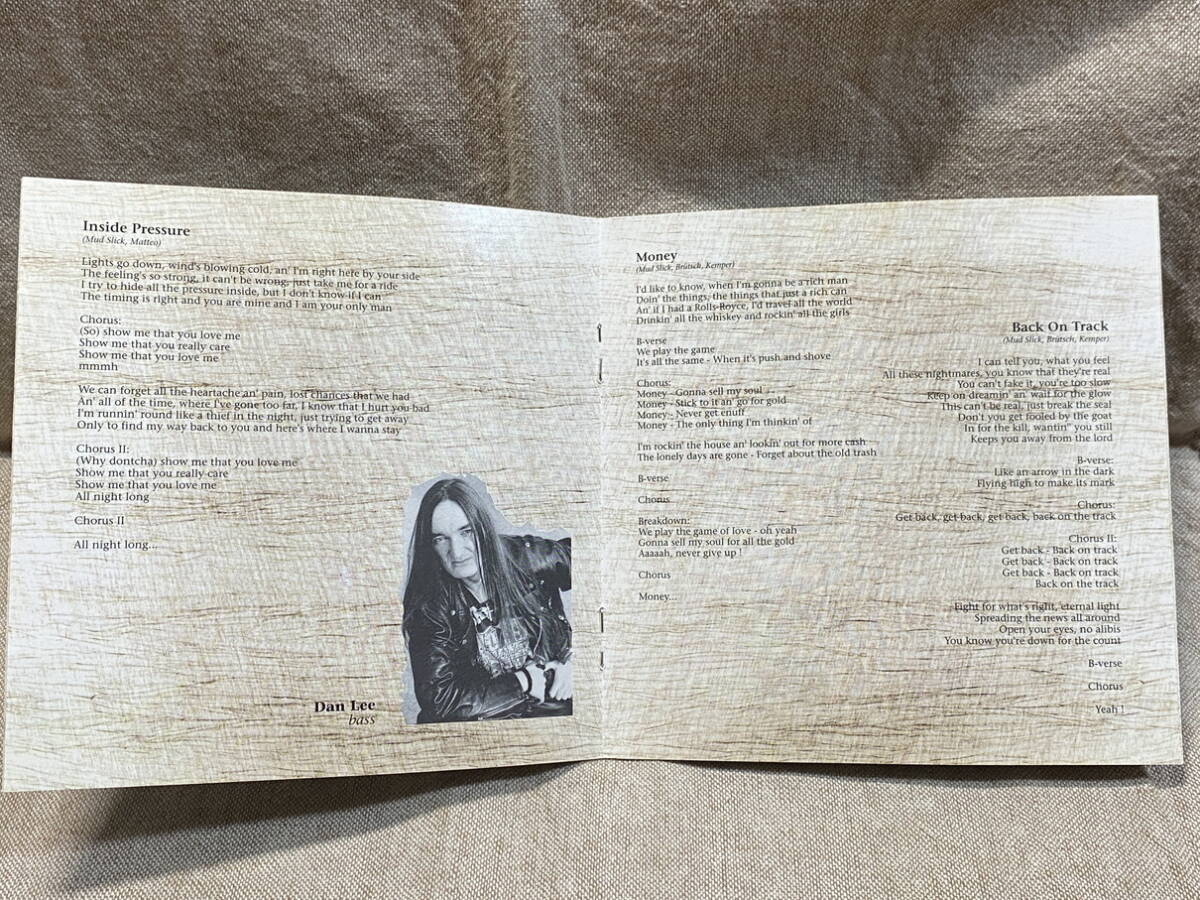 Inside Pressure
(Mud Slick, Matteo)
Lights go down, wind's blowing cold, an' I'm right here by your side
The feeling's so strong, it can't be wrong, just take me for a ride
I try to hide all the pressure inside, but I don't know if I can
The timing is right and you are mine and I am your only man
Chorus:
(So) show me that you love me
Show me that you really care
Show me that you love me
mmmh
We can forget all the heartache an' pain, lost chances that we had
An' all of the time, where I've gone too far, I know that I hurt you bad
I'm runnin' round like a thief in the night, just trying to get away
Only to find my way back to you and here's where I wanna stay
Chorus II:
(Why dontcha) show me that you love me
Show me that you really care
Show me that you love me
All night long
Chorus II
All night long...
Dan Lee
bass
Money
(Mud Slick, Brütsch, Kemper)
I'd like to know, when I'm gonna be a rich man
Doin' the things, the things that just a rich can
An' if I had a Rolls-Royce, I'd travel all the world
Drinkin' all the whiskey and rockin' all the girls
B-verse
We play the game
It's all the same - When it's push and shove
Chorus:
Money - Gonna sell my soul
Money - Stick to it an' go for gold
Money - Never get enuff
Money - The only thing I'm thinkin' of
I'm rockin' the house an' lookin' out for more cash
The lonely days are gone - Forget about the old trash
B-verse
Chorus
Breakdown:
We play the game of love - oh yeah
Gonna sell my soul for all the gold
Aaaaah, never give up !
Chorus
Money...
Back On Track
(Mud Slick, Brütsch, Kemper)
I can tell you, what you feel
All these nightmares, you know that they're real
You can't fake it, you're too slow
Keep on dreamin' an' wait for the glow
This can't be real, just break the seal
Don't you get fooled by the goat
In for the kill, wantin'' you still
Keeps you away from the lord
B-verse:
Like an arrow in the dark
Flying high to make its mark
Chorus:
Get back, get back, get back, back on the track
Chorus II:
Get back - Back on track
Get back - Back on track
Get back - Back on track
Back on the track
Fight for what's right, eternal light
Spreading the news all around
Open your eyes, no alibis
You know you're down for the count
B-verse
Chorus
Yeah !